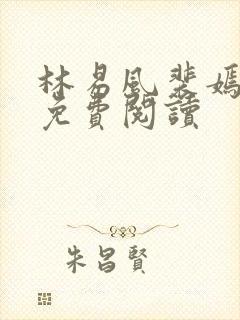 林易風裴嫣
免費閱讀
朱昌賢